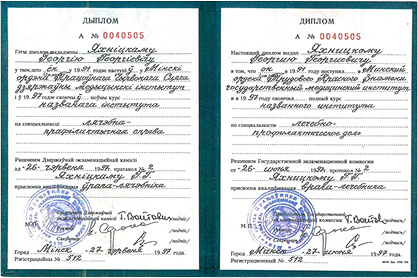 ДЫПЛОМ
А № 0040505
Гэты дыплом выдадзены Яхніцкаму
Георгію Георгіевічу
у тым, што ён у 19 г. паступіў у Мінскі
ордэна Працоўнага Чырвонага Сцяга
дзяржаўны медыцынскі інстытут
і ў 1997 годзе скончыў поўны курс
названага інстытута
па спецыяльнасці лячэбна-
прафілактычная справа
Рашэннем Дзяржаўнай экзаменацыйнай камісіі
ад «26» чэрвеня 1997 г. пратакол № 2
Яхніцкаму Г.Г.
прысвоена кваліфікацыя урача-лячэбніка
Старшыня Дзяржаўнай
М.П.
Рэктар
Сакратар
Горад Мінск 27 чэрвеня 1997 г.
Рэгістрацыйны № 512
ДИПЛОМ
А № 0040505
Настоящий диплом выдан Яхницкому
Георгию Георгиевичу
в том, что он в 19 г. поступил в Минский
ордена Трудового Красного Знамени
государственный медицинский институт
и в 1997 окончил полный курс
названного института
по специальности лечебно-
профилактическое дело
Решением Государственной экзаменационной комиссии
от «26» июня 1997 г. протокол № 2
Яхницкому Г.Г.
присвоена квалификация врача-лечебника
Председатель Государственной
М.П.
Ректор
Секретарь
Город Минск 27 июня 1997 г.
Регистрационный № 512